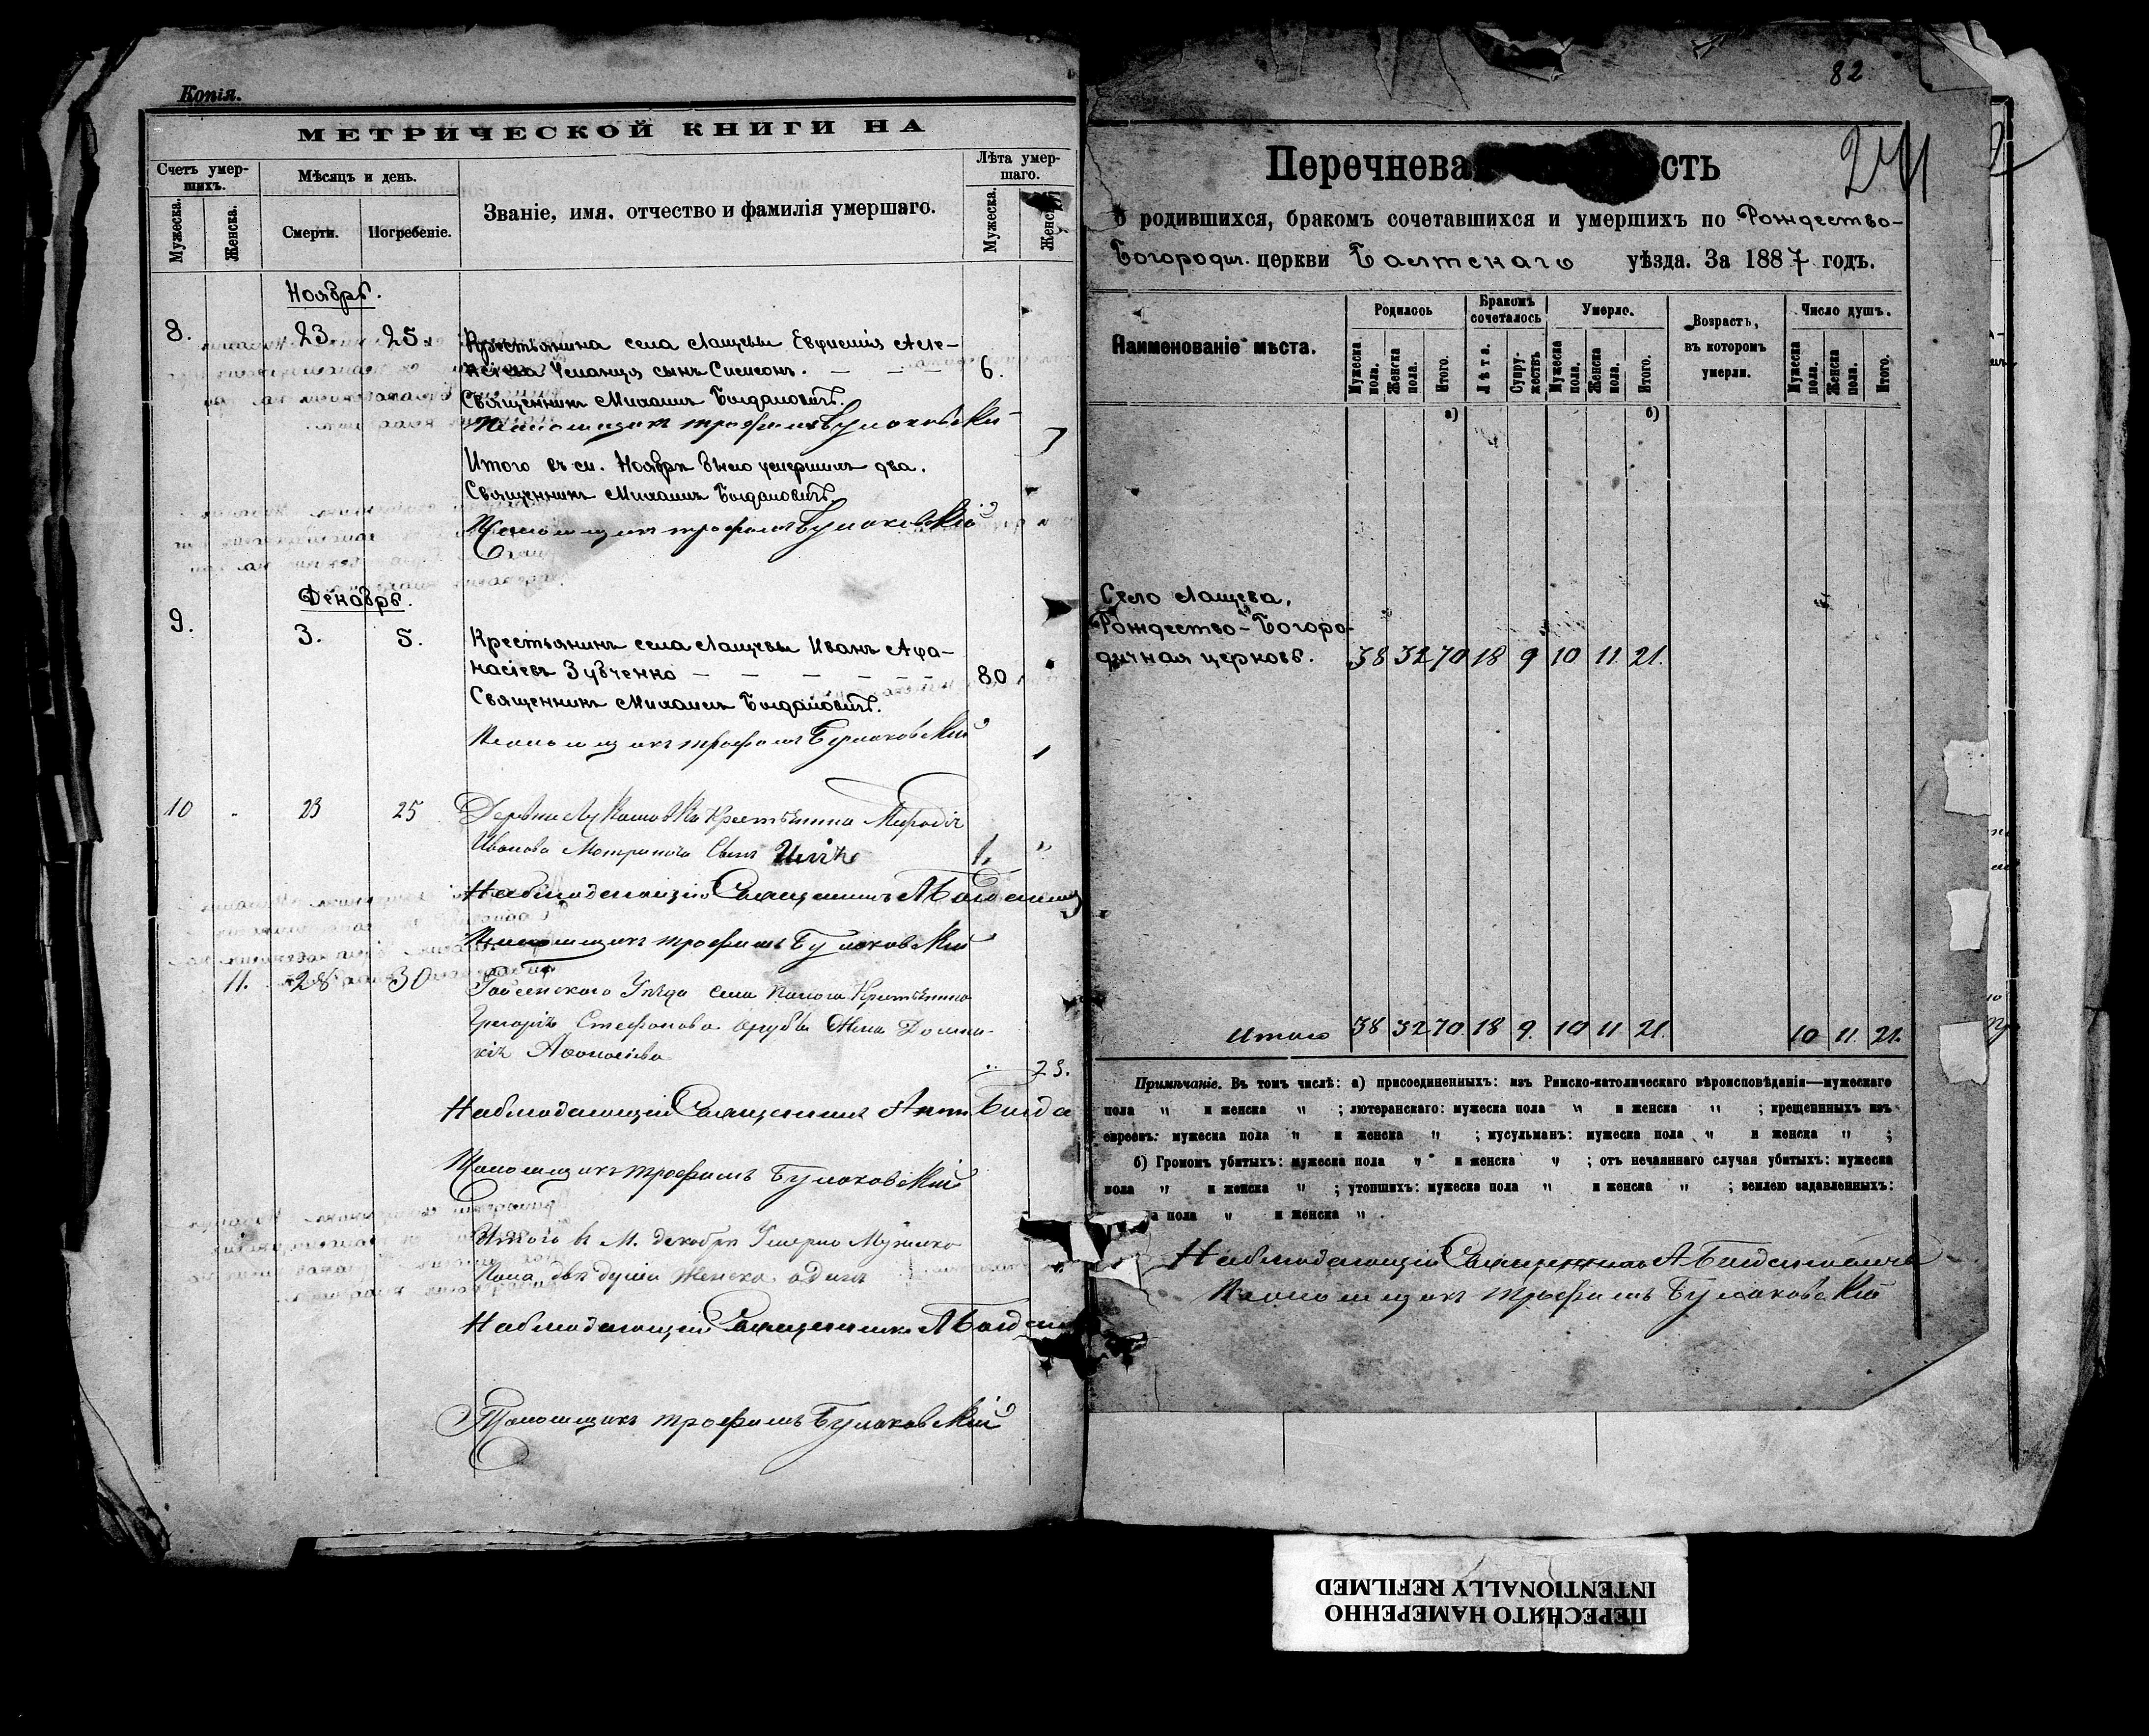 Копія.
МЕТРИЧЕСКОЙ КНИГИ НА
Счетъ умер-
шихъ.
Мѣсяцъ и день.
Званіе, имя, отчество и фамилія умершаго.
Лѣта умер-
шаго.
Мужеска.
Женска.
Смерти.
Погребеніе.
Мужеска.
Женск
Ноябрь.
8. 23. 25. Крестьянина села Лащевы Евфимія Але-
сынъ Симеонъ. — — 6.
Священникъ Михаилъ Богдановичъ.
Трофимъ Булаховскій
Итого въ м. Ноябрѣ было умершихъ два.
Священникъ Михаилъ Богдановичъ.
Трофимъ Булаховскій
Декабрь.
9. 3. 5. Крестьянинъ села Лащевы Иванъ Афа-
насіевъ Зубченко — — — — — 80
Священникъ Михаилъ Богдановичъ.
Трофимъ Булаховскій
10 23 25 Деревни Крестьянина
Иванова сынъ Илія 1. "
Наблюдающій Священникъ А Богданович
Трофимъ Булаховскій
11. 28 30 Гайсенского Уѣзда села Крестьянина
Григорія Стефанова жена Домни-
кія Афонасіева
" 75.
Наблюдающій Священникъ Богда
Трофимъ Булаховскій
Итого в М. декабрѣ Умерло Мужеско
Пола двѣ души Женско один
Наблюдающій Священникъ А Богдан
Трофимъ Булаховскій
82
Перечнева сть
о родившихся, бракомъ сочетавшихся и умершихъ по Рождество-
Богородич. церкви Балтскаго уѣзда. За 1887 годъ.
Наименованіе мѣста.
Родилось
Бракомъ
сочеталось
Умерло.
Возрастъ,
въ которомъ
умерли.
Число душъ.
Мужеска пола.
Женска пола.
Итого.
Лѣта.
Супру-
жествъ
Мужеска пола.
Женска пола.
Итого.
Мужеска пола.
Женска пола.
Итого.
а) б)
Село Лащева,
Рождество-Богоро-
дичная церковь. 38 32 70 18 9 10 11 21.
Итого 38 32 70 18 9. 10 11 21. 10 11 21.
Примѣчаніе. Въ томъ числѣ: а) присоединенныхъ: изъ Римско-католическаго вѣроисповѣданія—мужескаго
пола " и женска " ; лютеранскаго: мужеска пола " и женска " ; крещенныхъ изъ
евреевъ: мужеска пола " и женска " ; мусульманъ: мужеска пола " и женска " ;
б) Громомъ убитыхъ: мужеска пола " и женска " ; отъ нечаяннаго случая убитыхъ: мужеска
пола " и женска " ; утопшихъ: мужеска пола " и женска " ; землею задавленныхъ:
а пола " и женска " .
Наблюдающій Священникъ А Богдановичъ
Трофимъ Булаховскій
INTENTIONALLY REFILMED
ПЕРЕСНЯТО НАМЕРЕННО